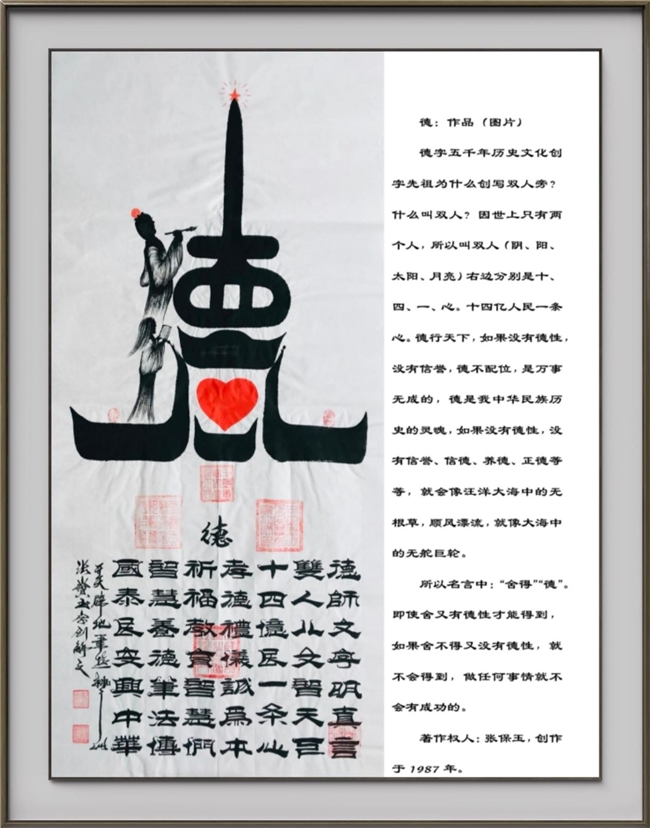 德
德師文字明真言
雙人文天
十四億民一条心
孝德禮儀誠為本
祈福教育智慧們
智慧養德筆法傳
國泰民安興中華
德：作品（图片）
德字五千年历史文化创
字先祖为什么创写双人旁？
什么叫双人？因世上只有两
个人，所以叫双人（阴、阳、
太阳、月亮）右边分别是十、
四、一、心。十四亿人民一条
心。德行天下，如果没有德性，
没有信誉，德不配位，是万事
无成的，德是我中华民族历
史的灵魂，如果没有德性，没
有信誉、信德、养德、正德等
等，就会像汪洋大海中的无
根草，顺风漂流，就像大海中
的无舵巨轮。
所以名言中：“舍得”“德”。
即使舍又有德性才能得到，
如果舍不得又没有德性，就
不会得到，做任何事情就不
会有成功的。
著作权人：张保玉，创作
于 1987 年。